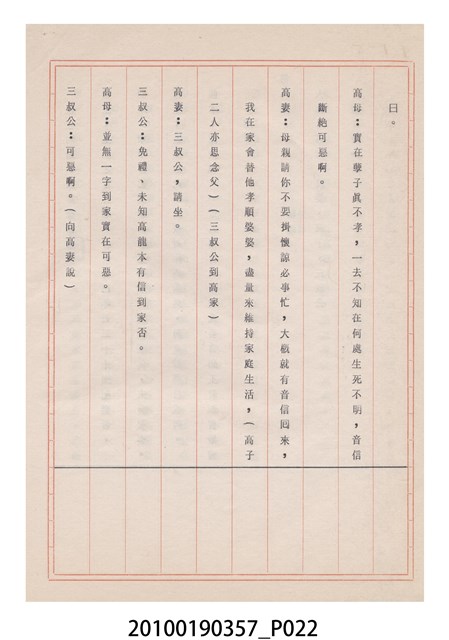 曰。
高母：實在孽子眞不孝，一去不知在何處生死不明，音信
斷絶可惡啊。
高妻：母親請你不要掛懷諒必事忙，大概就有音信囘來，
我在家會替他孝順婆婆，盡量來維持家庭生活，(高子
二人亦思念父)(三叔公到高家)
高妻：三叔公，請坐。
三叔公：免禮、未知高龍本有信到家否。
高母：並無一字到家實在可惡。
三叔公：可惡啊。(向高妻說)
20100190357_P022